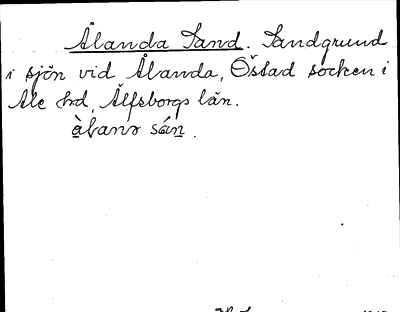 Ålanda Sand. Sandgrund
i sjön vid Ålanda, Östad socken i
Ale hd, Älfsborgs län.